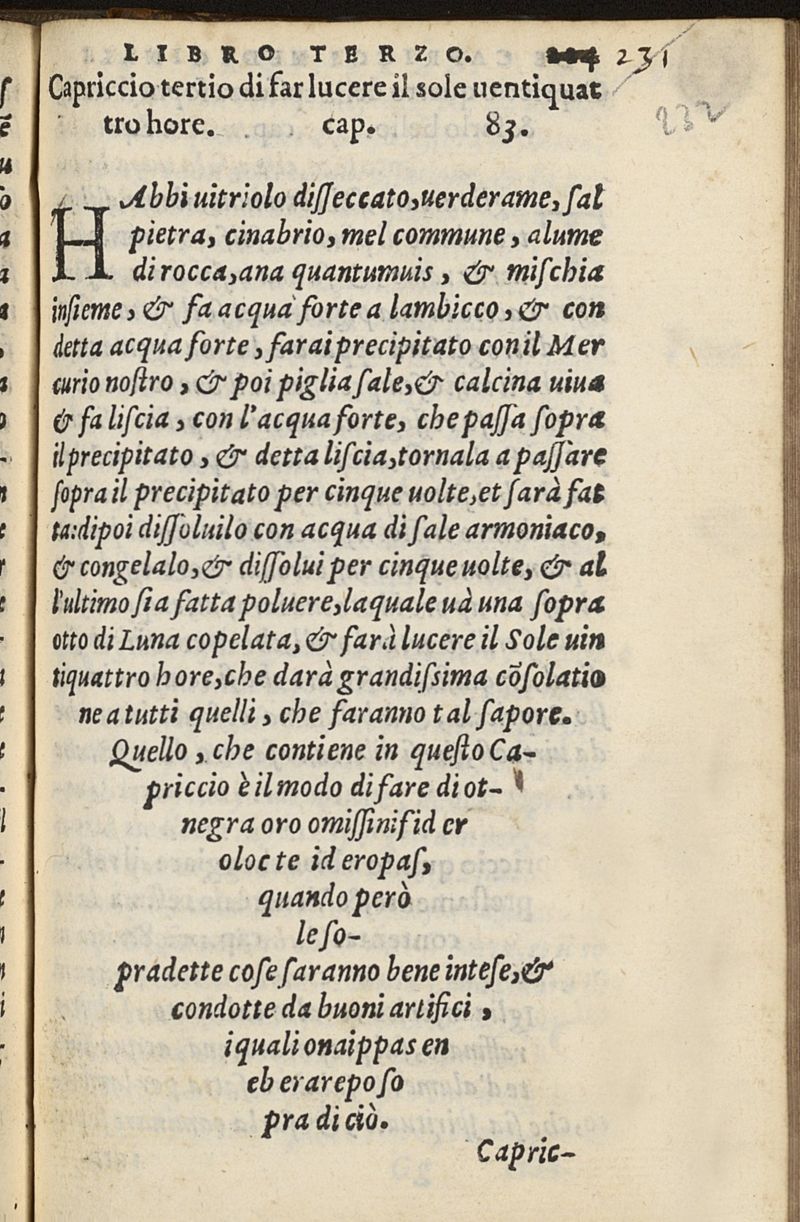 LIBRO TERZO. 231
232
Capriccio tertio di far lucere il sole uentiquat
tro hore. cap. 83.
HAbbi uitriolo disseccato, uerderame, sal
pietra, cinabrio, mel commune, alume
di rocca, ana quantumuis, & mischia
insieme, & fa acqua forte a lambicco, & con
detta acqua forte, farai precipitato con il Mer
curio nostro, & poi piglia sale, & calcina uiua
& fa liscia, con l'acqua forte, che passa sopra
il precipitato, & detta liscia, tornala a passàre
sopra il precipitato per cinque uolte, et sarà fat
ta: dipoi dissoluilo con acqua di sale armoniaco,
& congelalo, & dissolui per cinque uolte, & al
l'ultimo sia fatta poluere, laquale uà una sopra
otto di Luna copelata, & farà lucere il Sole uin
tiquattro hore, che darà grandissima cōsolatio
ne a tutti quelli, che faranno tal sapore.
Quello, che contiene in questo Ca-
priccio è il modo di fare di ot-
negra oro omissinifid er
oloc te id eropas,
quando però
le so-
pradette cose saranno bene intese, &
condotte da buoni artifici,
i quali onaippas en
eb erarepo so
pra di ciò.
Capric-